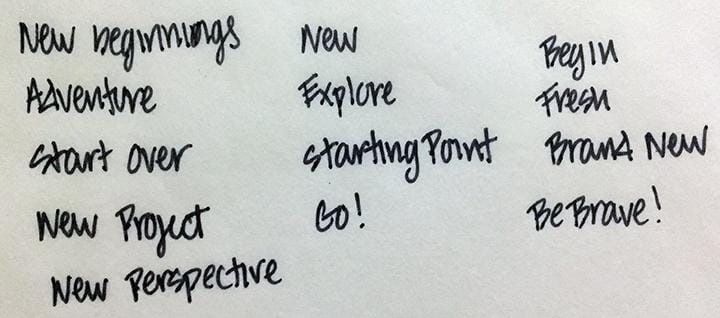 New beginnings
Adventure
Start over
New Project
New Perspective
New
Explore
Starting Point
Go!
Begin
Fresh
Brand New
Be Brave!